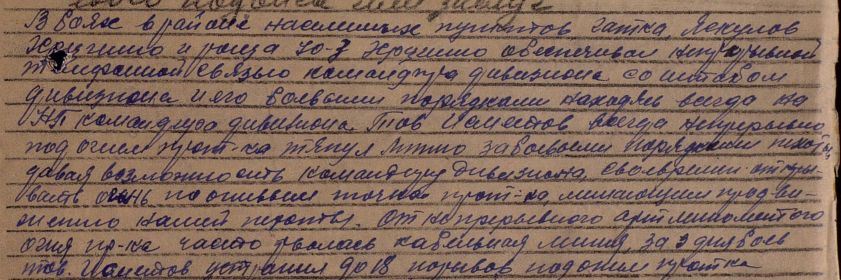 В боях в районе населенных пунктов Гатка
и роща Ю-З обеспечивал непрерывной
телефонной связью командира дивизиона со штабом
дивизиона и его боевыми порядками находясь всегда на
НП командира дивизиона. Тов. всегда непрерывно
под огнем прот-ка тянул линию за боевыми порядками пехоты,
давая возможность командиру дивизиона своевремен откры-
вать огонь по огневым точкам прот-ка мешающим продви-
жению нашей пехоты. От непрерывного арт минометного
огня пр-ка часто рвалась кабельная линия, за 3 дня боев
тов. устранил до 18 порывов под огнем прот-ка